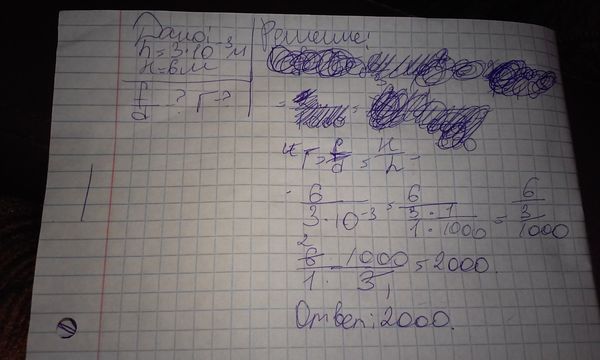 Дано:
h = 3·10⁻³ м
H = 6 м
f/d - ? Г - ?
Решение:
Г = f/d = H/h =
6/(3·10⁻³) = 6/((3·1)/(1·1000)) = 6/(3/1000)
(6·1000)/(1·3) = 2000.
Ответ: 2000.